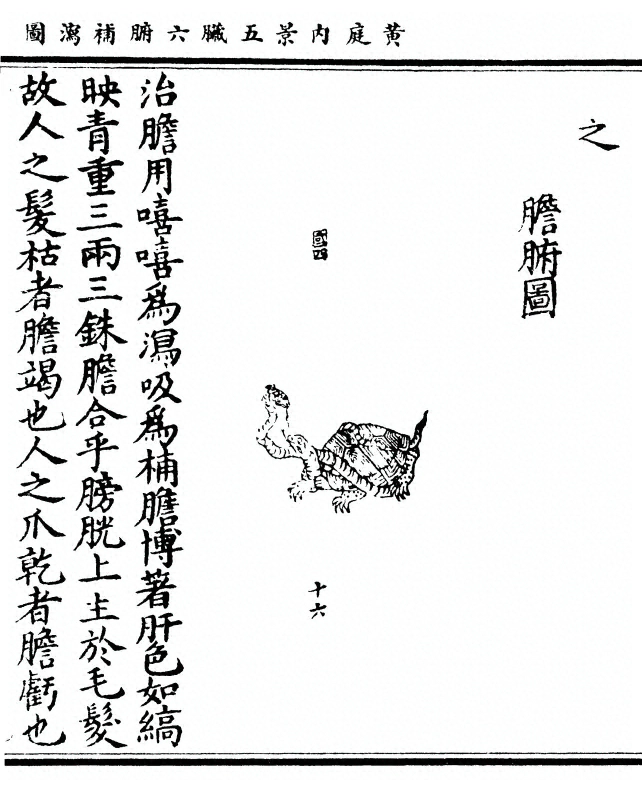 黃庭内景五臟六腑補瀉圖
之
膽腑圖
國四
十六
治膽用嘻嘻爲瀉吸爲補膽博著肝色如縞
映青重三兩三銖膽合乎膀胱上主於毛髮
故人之髮枯者膽竭也人之爪乾者膽虧也